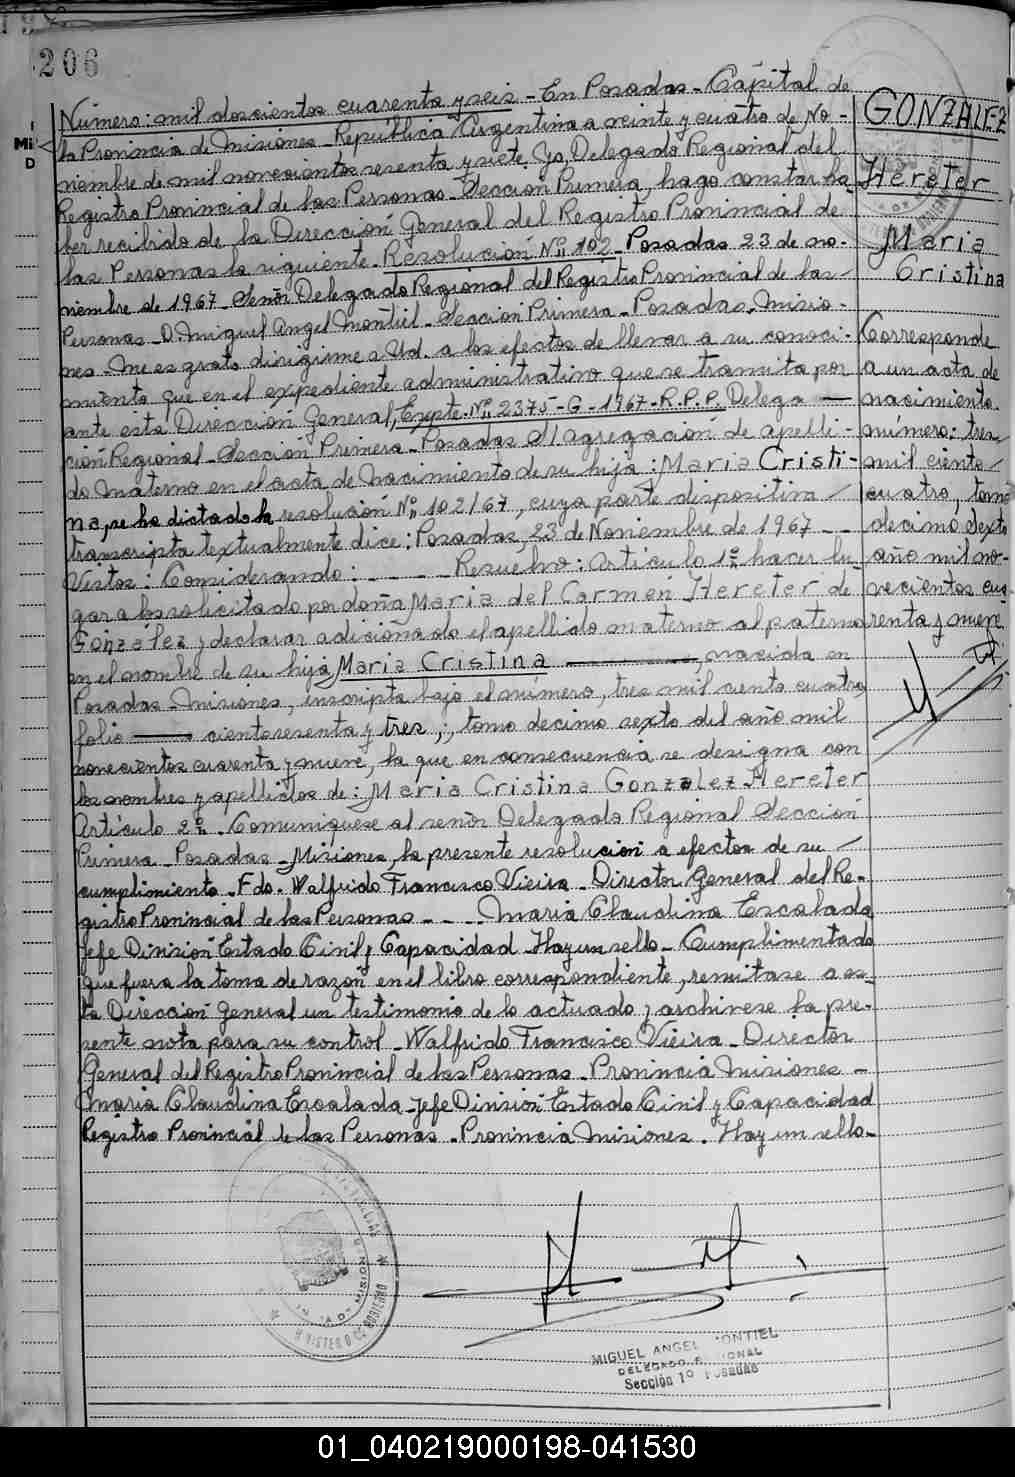 206
Número: mil doscientos cuarenta y seis - En Posadas - Capital de
la Provincia de Misiones - República Argentina a veinte y cuatro de No-
viembre de mil novecientos sesenta y siete. Yo, Delegado Regional del
Registro Provincial de las Personas - Sección Primera, hago constar ha-
ber recibido de la Dirección General del Registro Provincial de
las Personas la siguiente. Resolución Nº 102 - Posadas 23 de no-
viembre de 1967 - Señor Delegado Regional del Registro Provincial de las
Personas - D. Miguel Angel Montiel - Sección Primera - Posadas - Misio-
nes - Me es grato dirigirme a Ud. a los efectos de llevar a su conoci-
miento que en el expediente administrativo que se tramita por
ante esta Dirección General, Expte. Nº 2375 - G - 1967 - R.P.P. Delega
ción Regional - Sección Primera - Posadas S/ agregación de apelli-
do materno en el acta de nacimiento de su hija: Maria Cristi-
na, se ha dictado la resolución Nº 102/67, cuya parte dispositiva
transcripta textualmente dice: Posadas, 23 de Noviembre de 1967 - -
Vistos: Considerando: - - - - Resuelvo: Artículo 1º hacer lu
gar a lo solicitado por doña Maria del Carmen Hereter de
Gonzalez, y declarar adicionado el apellido materno al paterno
en el nombre de su hija Maria Cristina ———, nacida en
Posadas Misiones, inscripta bajo el número, tres mil ciento cuatro,
folio —— ciento sesenta y tres,; tomo decimo sexto del año mil
novecientos cuarenta y nueve, la que en consecuencia se designa con
los nombres y apellidos de: Maria Cristina Gonzalez Hereter
Artículo 2º. Comuniquese al señor Delegado Regional Sección
Primera Posadas - Misiones, la presente resolucion a efectos de su
cumplimiento - Fdo. Walfrido Francisco Vieira - Director General del Re-
gistro Provincial de las Personas - - - Maria Claudina Escalada
Jefe División Estado Civil y Capacidad - Hay un sello - Cumplimentado
que fuera la toma de razón en el libro correspondiente, remitase a es-
ta Dirección General un testimonio de lo actuado y archivese la pre-
sente nota para su control - Walfrido Francisco Vieira - Director
General del Registro Provincial de las Personas - Provincia Misiones -
Maria Claudina Escalada - Jefe División Estado Civil y Capacidad
Registro Provincial de las Personas - Provincia Misiones. Hay un sello -
GONZALEZ
Hereter
Maria
Cristina
Corresponde
a un acta de
nacimiento.
número: tres
mil ciento
cuatro, tomo
decimo sexto
año mil no-
vecientos cua
renta y nueve
MIGUEL ANGEL MONTIEL
DELEGADO REGIONAL
Sección 1º Posadas
01_040219000198-041530